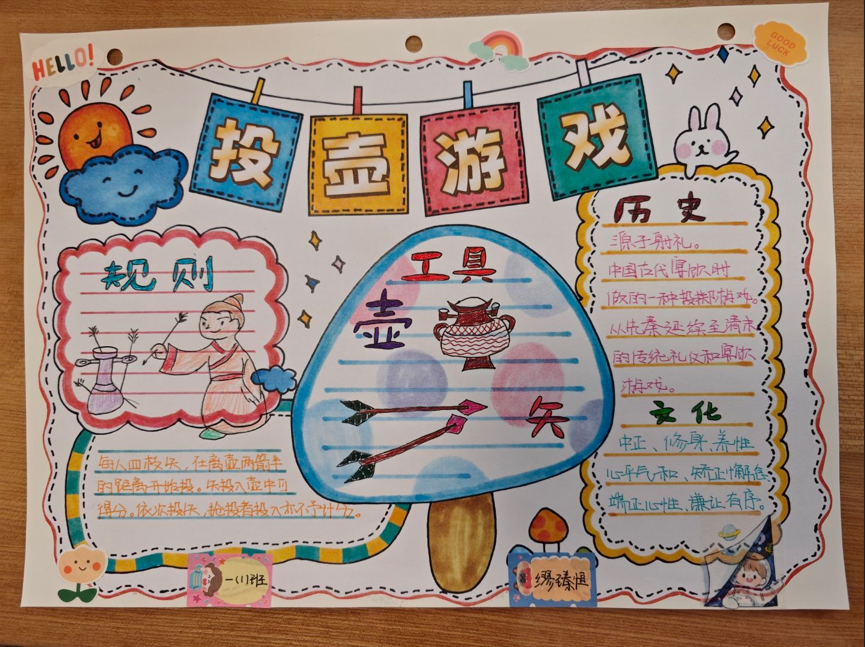 HELLO!
GOOD LUCK
投壶游戏
规则
每人四枚矢,在离壶两箭半
的距离开始投。矢投入壶中可
得分。依次投矢,抢投者投入亦不予计分。
工具
壶
矢
历史
源于射礼。
中国古代宴饮时
做的一种投掷游戏。
从先秦延续至清末
的传统礼仪和宴饮
游戏。
文化
中正、修身、养性
心平气和、矫正懈怠
端正心性、谦让有序。
一(1)班
缪臻恒